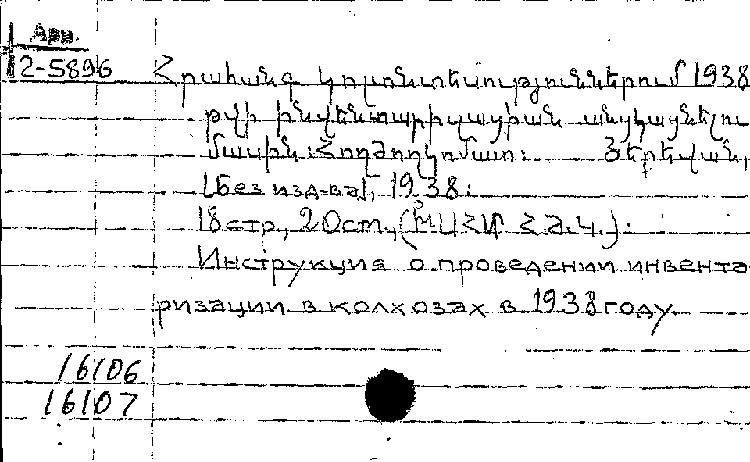 Арм.
12-5896
Հրահանգ կոլտնտեսություններում 1938
թվի ինվենտարիզացիան անցկացնելու
մասին: Հողժողկոմատ: Յերեվան,
[Без изд-ва], 1938:
18 стр., 20 см.,
Инструкция о проведении инвента
ризации в колхозах в 1938 году.
16106
16107